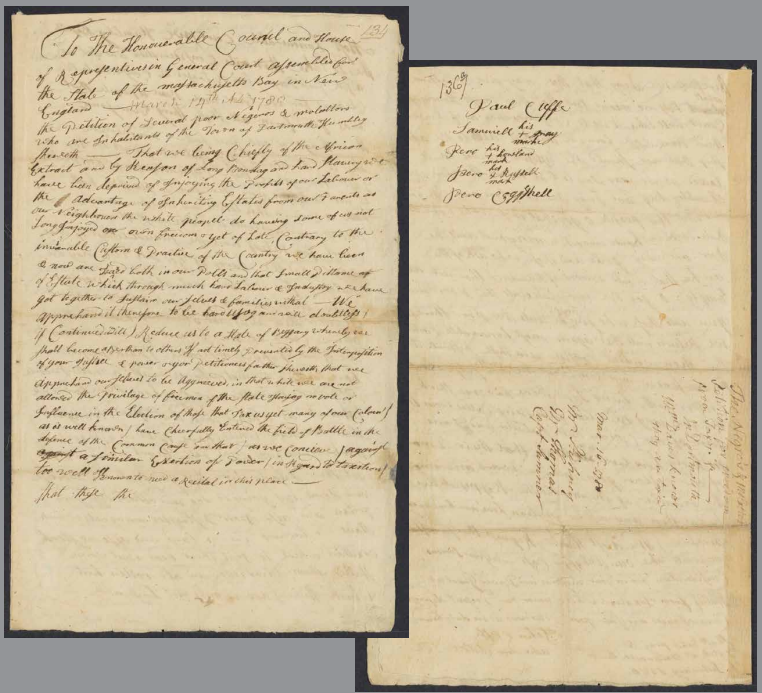 134
To The Honouerable Councel and House
of Representives in General Court assembled for
the State of the massachusetts Bay in New
England — March 14th AD 1780 —
the Petition of Several poor Negroes & molattoes
who are Inhabitants of the Town of Dartmouth Humbly
Sheweth — That we being Chiefly of the African
Extract and by Reason of Long Bondag and hard Slavery we
have been deprived of Injoying the Profits of our Labour or
the Advantage of Inheriting Estates from our Parents as
our Neighbouers the white peopel do having some of us not
Long Injoyed our own freedom & yet of late, Contrary to the
invariable Custom & Practice of the Country we have been
& now are Taxed both in our Polls and that small Pittance of
Estate which through much hard Labour & Industry we have
got together to Sustain our selves & families withall — We
apprehand it therefore to be hard usag and
if Continued will Reduce us to a State of Beggary whereby we
shall become a Berthan to others if not timely prevented by the Interposition
of your Justice & power & yor petitioners farther sheweth that we
apprehand our selves to be Aggreeved, in that while we are not
allowed the Privilage of freemen of the State having no vote or
Influence in the Election of those that Tax us yet many of our Colour
as is well known have Cheerfully Entered the field of Battle in the
defence of the Common Cause and that as we Conceive against
a similar Exertion of Power in Regard to taxation
too well known to need a Recital in this place —
that these the
136
Paul Cuffe
Samuell his
+ gray
marke
Pero his
+ howland
mark
Pero his
+ Russell
mark
Pero Coggeshell